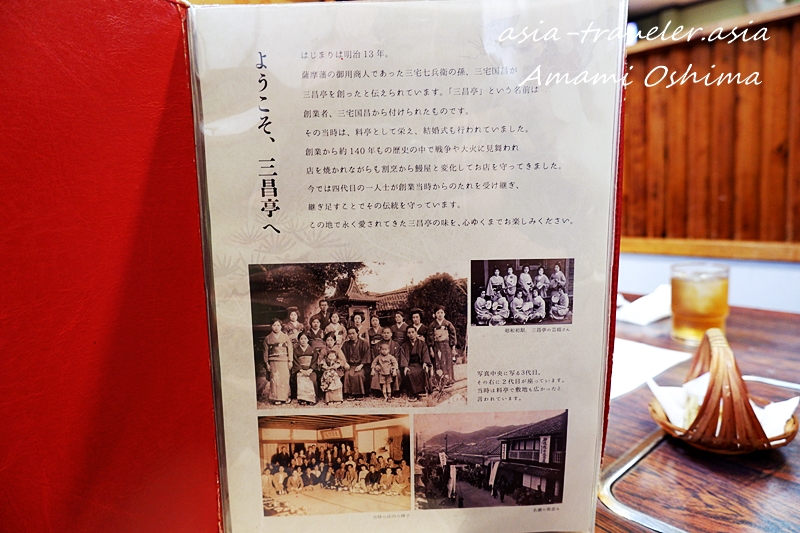 asia-traveler.asia
Amami Oshima
ようこそ、三昌亭へ
はじまりは明治13年。
薩摩藩の御用商人であった三宅七兵衛の孫、三宅国昌が
三昌亭を創ったと伝えられています。「三昌亭」という名前は
創業者、三宅国昌から付けられたものです。
その当時は、料亭として栄え、結婚式も行われていました。
創業から約140年もの歴史の中で戦争や大火に見舞われ
店を焼かれながらも割烹から鰻屋と変化してお店を守ってきました。
今では四代目の一人士が創業当時からのたれを受け継ぎ、
継ぎ足すことでその伝統を守っています。
この地で永く愛されてきた三昌亭の味を、心ゆくまでお楽しみください。
昭和初期、三昌亭の芸妓さん
写真中央に写る3代目。
その右に2代目が座っています。
当時は料亭で敷地も広かったと
言われています。